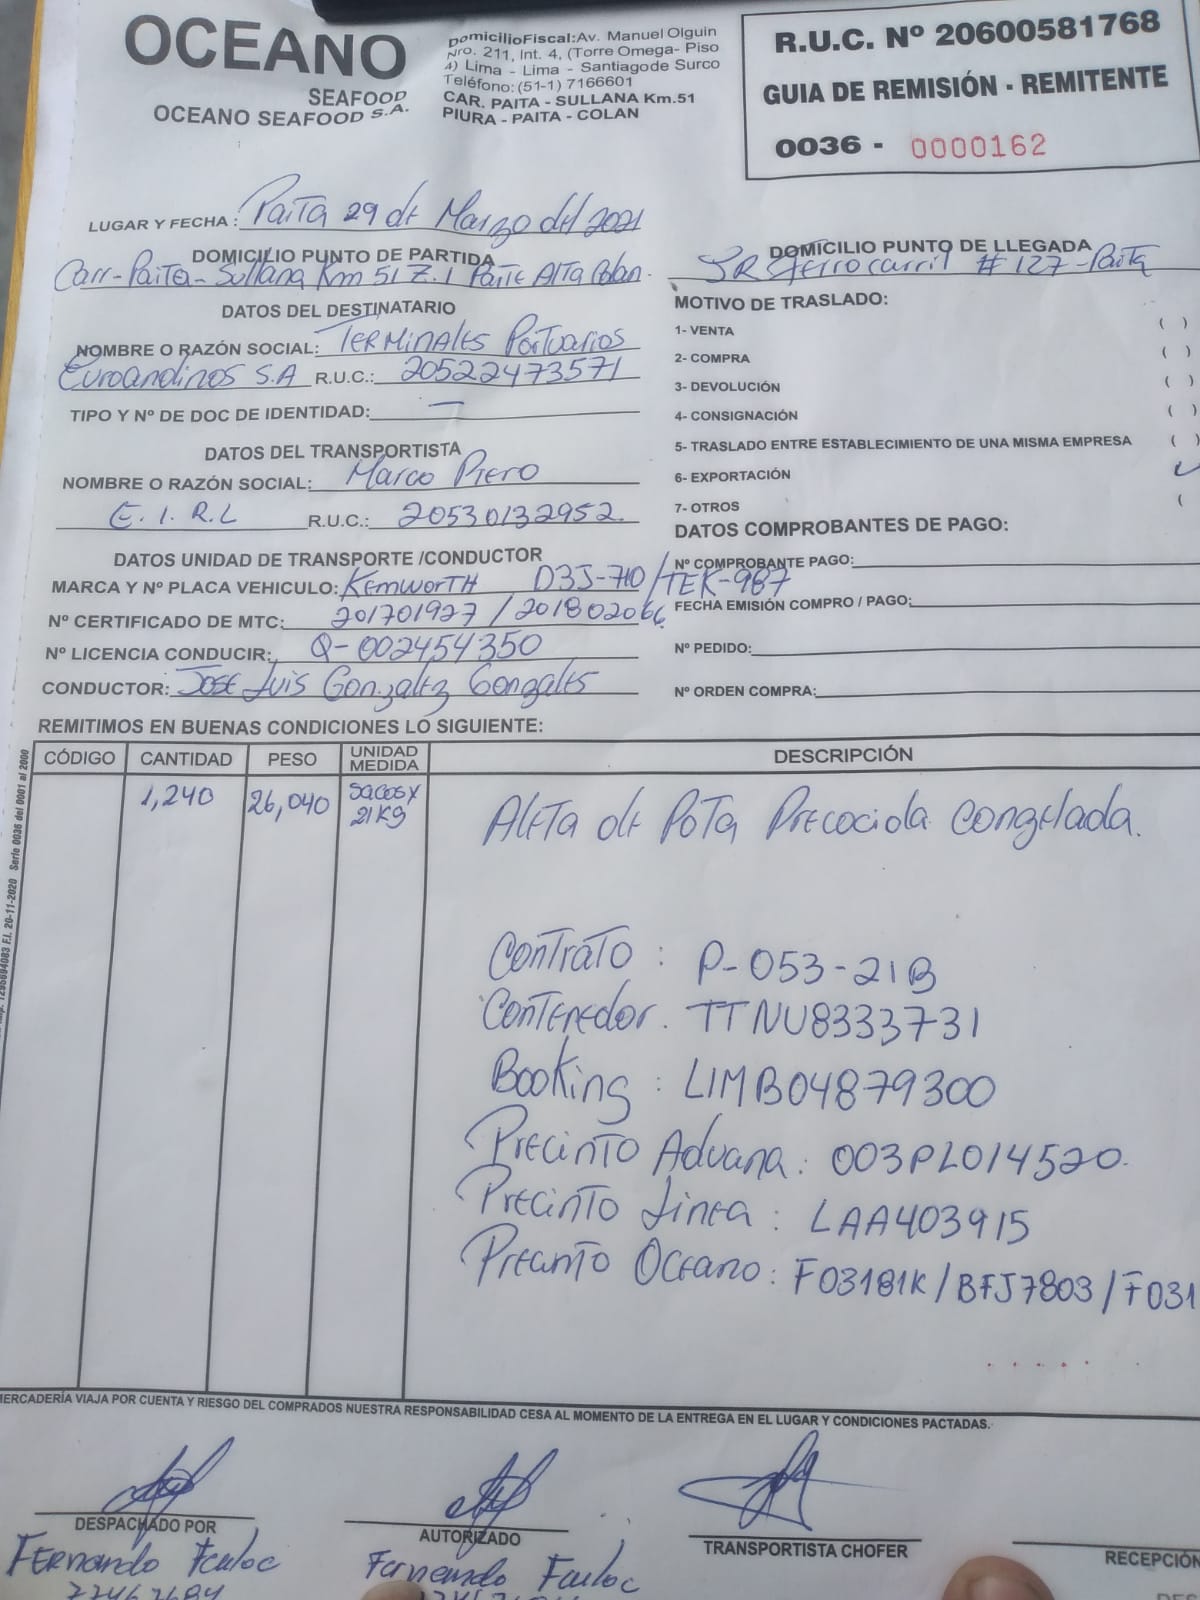 OCEANO
SEAFOOD
OCEANO SEAFOOD S.A.
Domicilio Fiscal: Av. Manuel Olguin
Nro. 211, Int. 4, (Torre Omega- Piso
4) Lima - Lima - Santiagode Surco
Teléfono: (51-1) 7166601
CAR. PAITA - SULLANA Km.51
PIURA - PAITA - COLAN
R.U.C. Nº 20600581768
GUIA DE REMISIÓN - REMITENTE
0036 - 0000162
LUGAR Y FECHA : Paita 29 de Marzo del 2021
DOMICILIO PUNTO DE PARTIDA
Carr-Paita-Sullana Km 51 Z.1 Parte Alta Colan.
DOMICILIO PUNTO DE LLEGADA
JR Ferrocarril # 127-Paita
DATOS DEL DESTINATARIO
NOMBRE O RAZÓN SOCIAL: Terminales Portuarios
Euroandinos S.A R.U.C.: 20522473571
TIPO Y Nº DE DOC DE IDENTIDAD: —
DATOS DEL TRANSPORTISTA
NOMBRE O RAZÓN SOCIAL: Marco Piero
E.I.R.L R.U.C.: 20530132952
MOTIVO DE TRASLADO:
1- VENTA ( )
2- COMPRA ( )
3- DEVOLUCIÓN ( )
4- CONSIGNACIÓN ( )
5- TRASLADO ENTRE ESTABLECIMIENTO DE UNA MISMA EMPRESA ( )
6- EXPORTACIÓN ✓
7- OTROS (
DATOS UNIDAD DE TRANSPORTE /CONDUCTOR
MARCA Y Nº PLACA VEHICULO: Kemworth D3J-710 / TEK-987
Nº CERTIFICADO DE MTC: 201701927 / 201802066
Nº LICENCIA CONDUCIR: Q-002454350
CONDUCTOR: Jose Luis Gonzalez Gonzales
DATOS COMPROBANTES DE PAGO:
Nº COMPROBANTE PAGO:
FECHA EMISIÓN COMPRO / PAGO:
Nº PEDIDO:
Nº ORDEN COMPRA:
REMITIMOS EN BUENAS CONDICIONES LO SIGUIENTE:
CÓDIGO CANTIDAD PESO UNIDAD MEDIDA DESCRIPCIÓN
1,240 26,040 sacos x 21KG Aleta de Pota Precocida Congelada.
Contrato : P-053-21B
Contenedor. TTNU8333731
Booking : LIMB04879300
Precinto Aduana : 003PL014520.
Precinto Linea : LAA403915
Precinto Oceano : F03181K / BFJ7803 / F031
Serie 0036 del 0001 al 2000
F.I. 20-11-2020
MERCADERÍA VIAJA POR CUENTA Y RIESGO DEL COMPRADOS NUESTRA RESPONSABILIDAD CESA AL MOMENTO DE LA ENTREGA EN EL LUGAR Y CONDICIONES PACTADAS.
DESPACHADO POR
Fernando
AUTORIZADO
Fernando
TRANSPORTISTA CHOFER
RECEPCIÓN